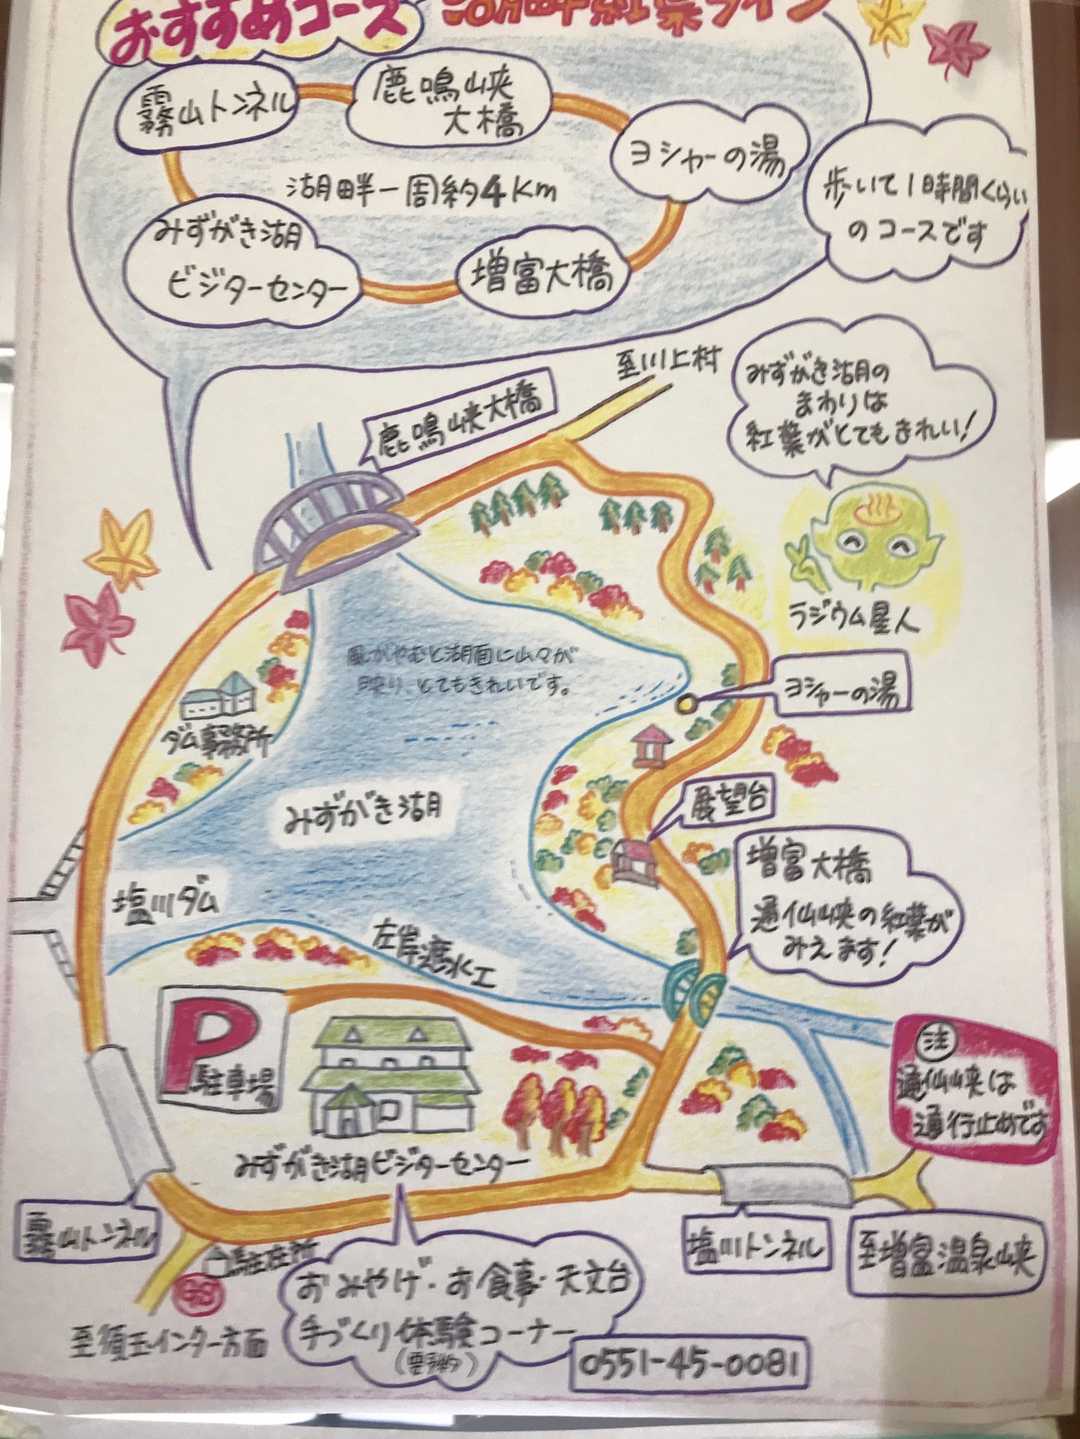 おすすめコース
湖畔紅葉ライン
霧山トンネル
鹿鳴峡
大橋
ヨシャーの湯
湖畔一周約4km
歩いて1時間くらい
のコースです
みずがき湖
ビジターセンター
増富大橋
至川上村
みずがき湖の
まわりは
紅葉がとてもきれい!
鹿鳴峡大橋
ラジウム星人
風がやむと湖面に山々が
映り、とてもきれいです。
ヨシャーの湯
ダム事務所
展望台
みずがき湖
増富大橋
通仙峡の紅葉が
みえます!
塩川ダム
左岸遮水工
P
駐車場
注
通仙峡は
通行止めです
みずがき湖ビジターセンター
霧山トンネル
塩川トンネル
至増富温泉峡
駐在所
至須玉インター方面
おみやげ・お食事・天文台
手づくり体験コーナー
(要予約)
0551-45-0081